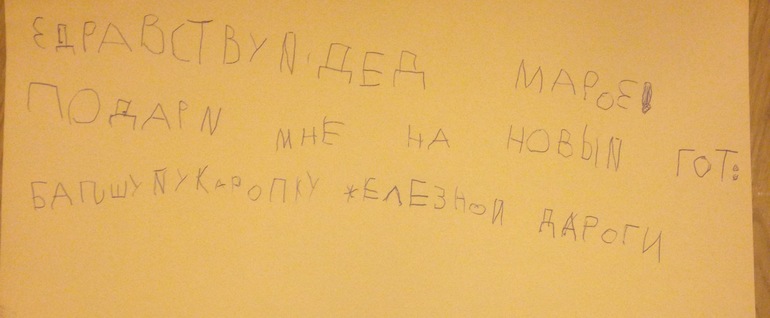 ЗДРАВСТВУЙ ДЕД МАРОЗ
ПОДАРИ МНЕ НА НОВЫЙ ГОТ:
БАГШУЙУ КАРОПКУ ЖЕЛЕЗНОЙ ДАРОГИ